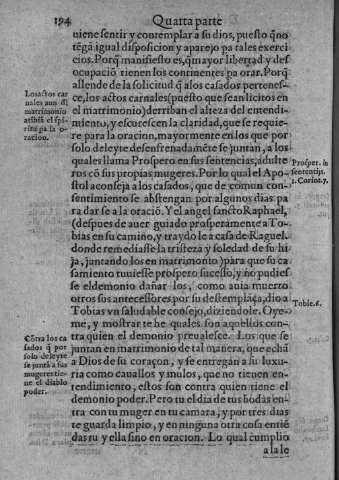 194
Quarta parte
uiene sentir y contemplar a su dios, puesto q̃no
tẽgã igual disposicion y aparejo pa tales exerci
cios. Porq̃ manifiesto es, q̃ mayor libertad y des
ocupaciõ tienen los continentes pa orar. Porq̃
allende de la solicitud q̃ a los casados pertenes-
ce, los actos carnales (puesto que sean licitos en
el matrimonio) derriban el alteza del entendi-
miento, y escurescen la claridad, que se requie-
re para la oracion, mayormente en los que por
solo deleyte desenfrenadamẽte se juntan, a los
quales llama Prospero en sus sentencias, adulte
ros cõ sus propias mugeres. Por lo qual el Apo-
stol aconseja a los casados, que de comun con-
sentimiento se abstengan por algunos dias pa
ra darse a la oraciõ. Y el angel sancto Raphael,
(despues de auer guiado prosperamente a To-
bias en su camino, y traydo le a casa de Raguel
donde remediasse la tristeza y soledad de su hi
ja, juntando los en matrimonio) para que su ca
samiento tuuiesse prospero sucesso, y no pudies
se el demonio dañar los, como auia muerto
otros sus antecessores por su destemplãça, dio a
Tobias vn saludable consejo, diziendole. Oye-
me, y mostrar te he quales son aquellos con-
tra quien el demonio preualesce. Los que se
juntan en matrimonio de tal manera, que echã
a Dios de su coraçon, y se entregan a su luxu-
ria como cauallos y mulos, que no tienen en-
tendimiento, estos son contra quien tiene el
demonio poder. Pero tu el dia de tus bodas en-
tra con tu muger en tu camara, y por tres dias
te guarda limpio, y en ninguna otra cosa entiẽ
das tu y ella sino en oracion. Lo qual cumplio
a la le
Los actos car
nales aun ď
matrimonio
el spi-
ritu pa la o-
racion.
Cõtra los ca
sados q̃ por
solo deleyte
se juntã a sus
mugeres tie-
ne el diablo
poder.
Prosper. in
sententijs.
1. Corint. 7.
Tobie. 6.